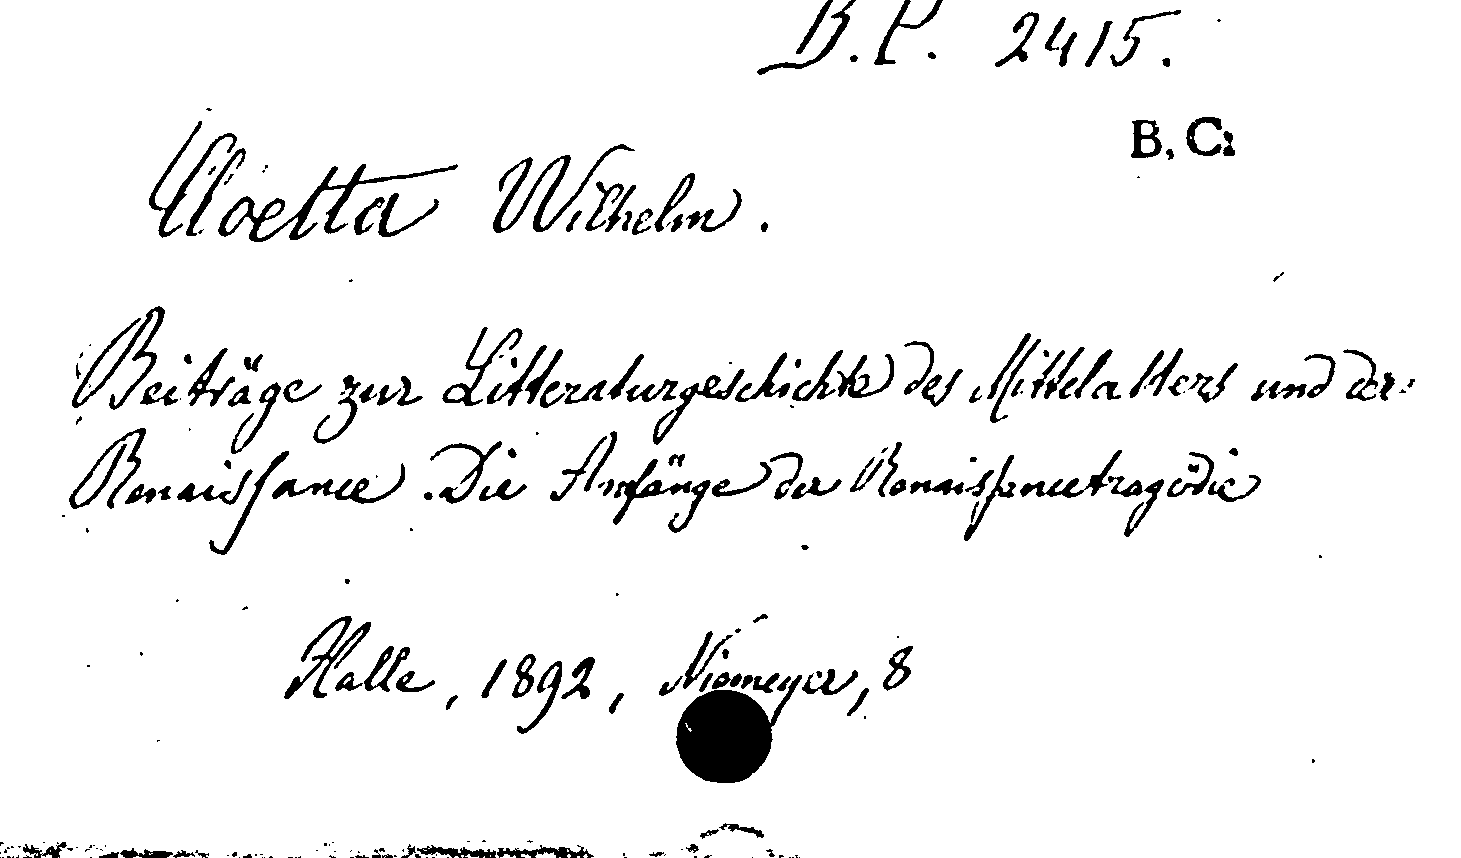 B.P. 2415.
B. C.
Cloetta Wilhelm.
Beiträge zur Litteraturgeschichte des Mittelalters und der
Renaissance. Die Anfänge der Renaissancetragödie
Halle, 1892, Niemeyer, 8